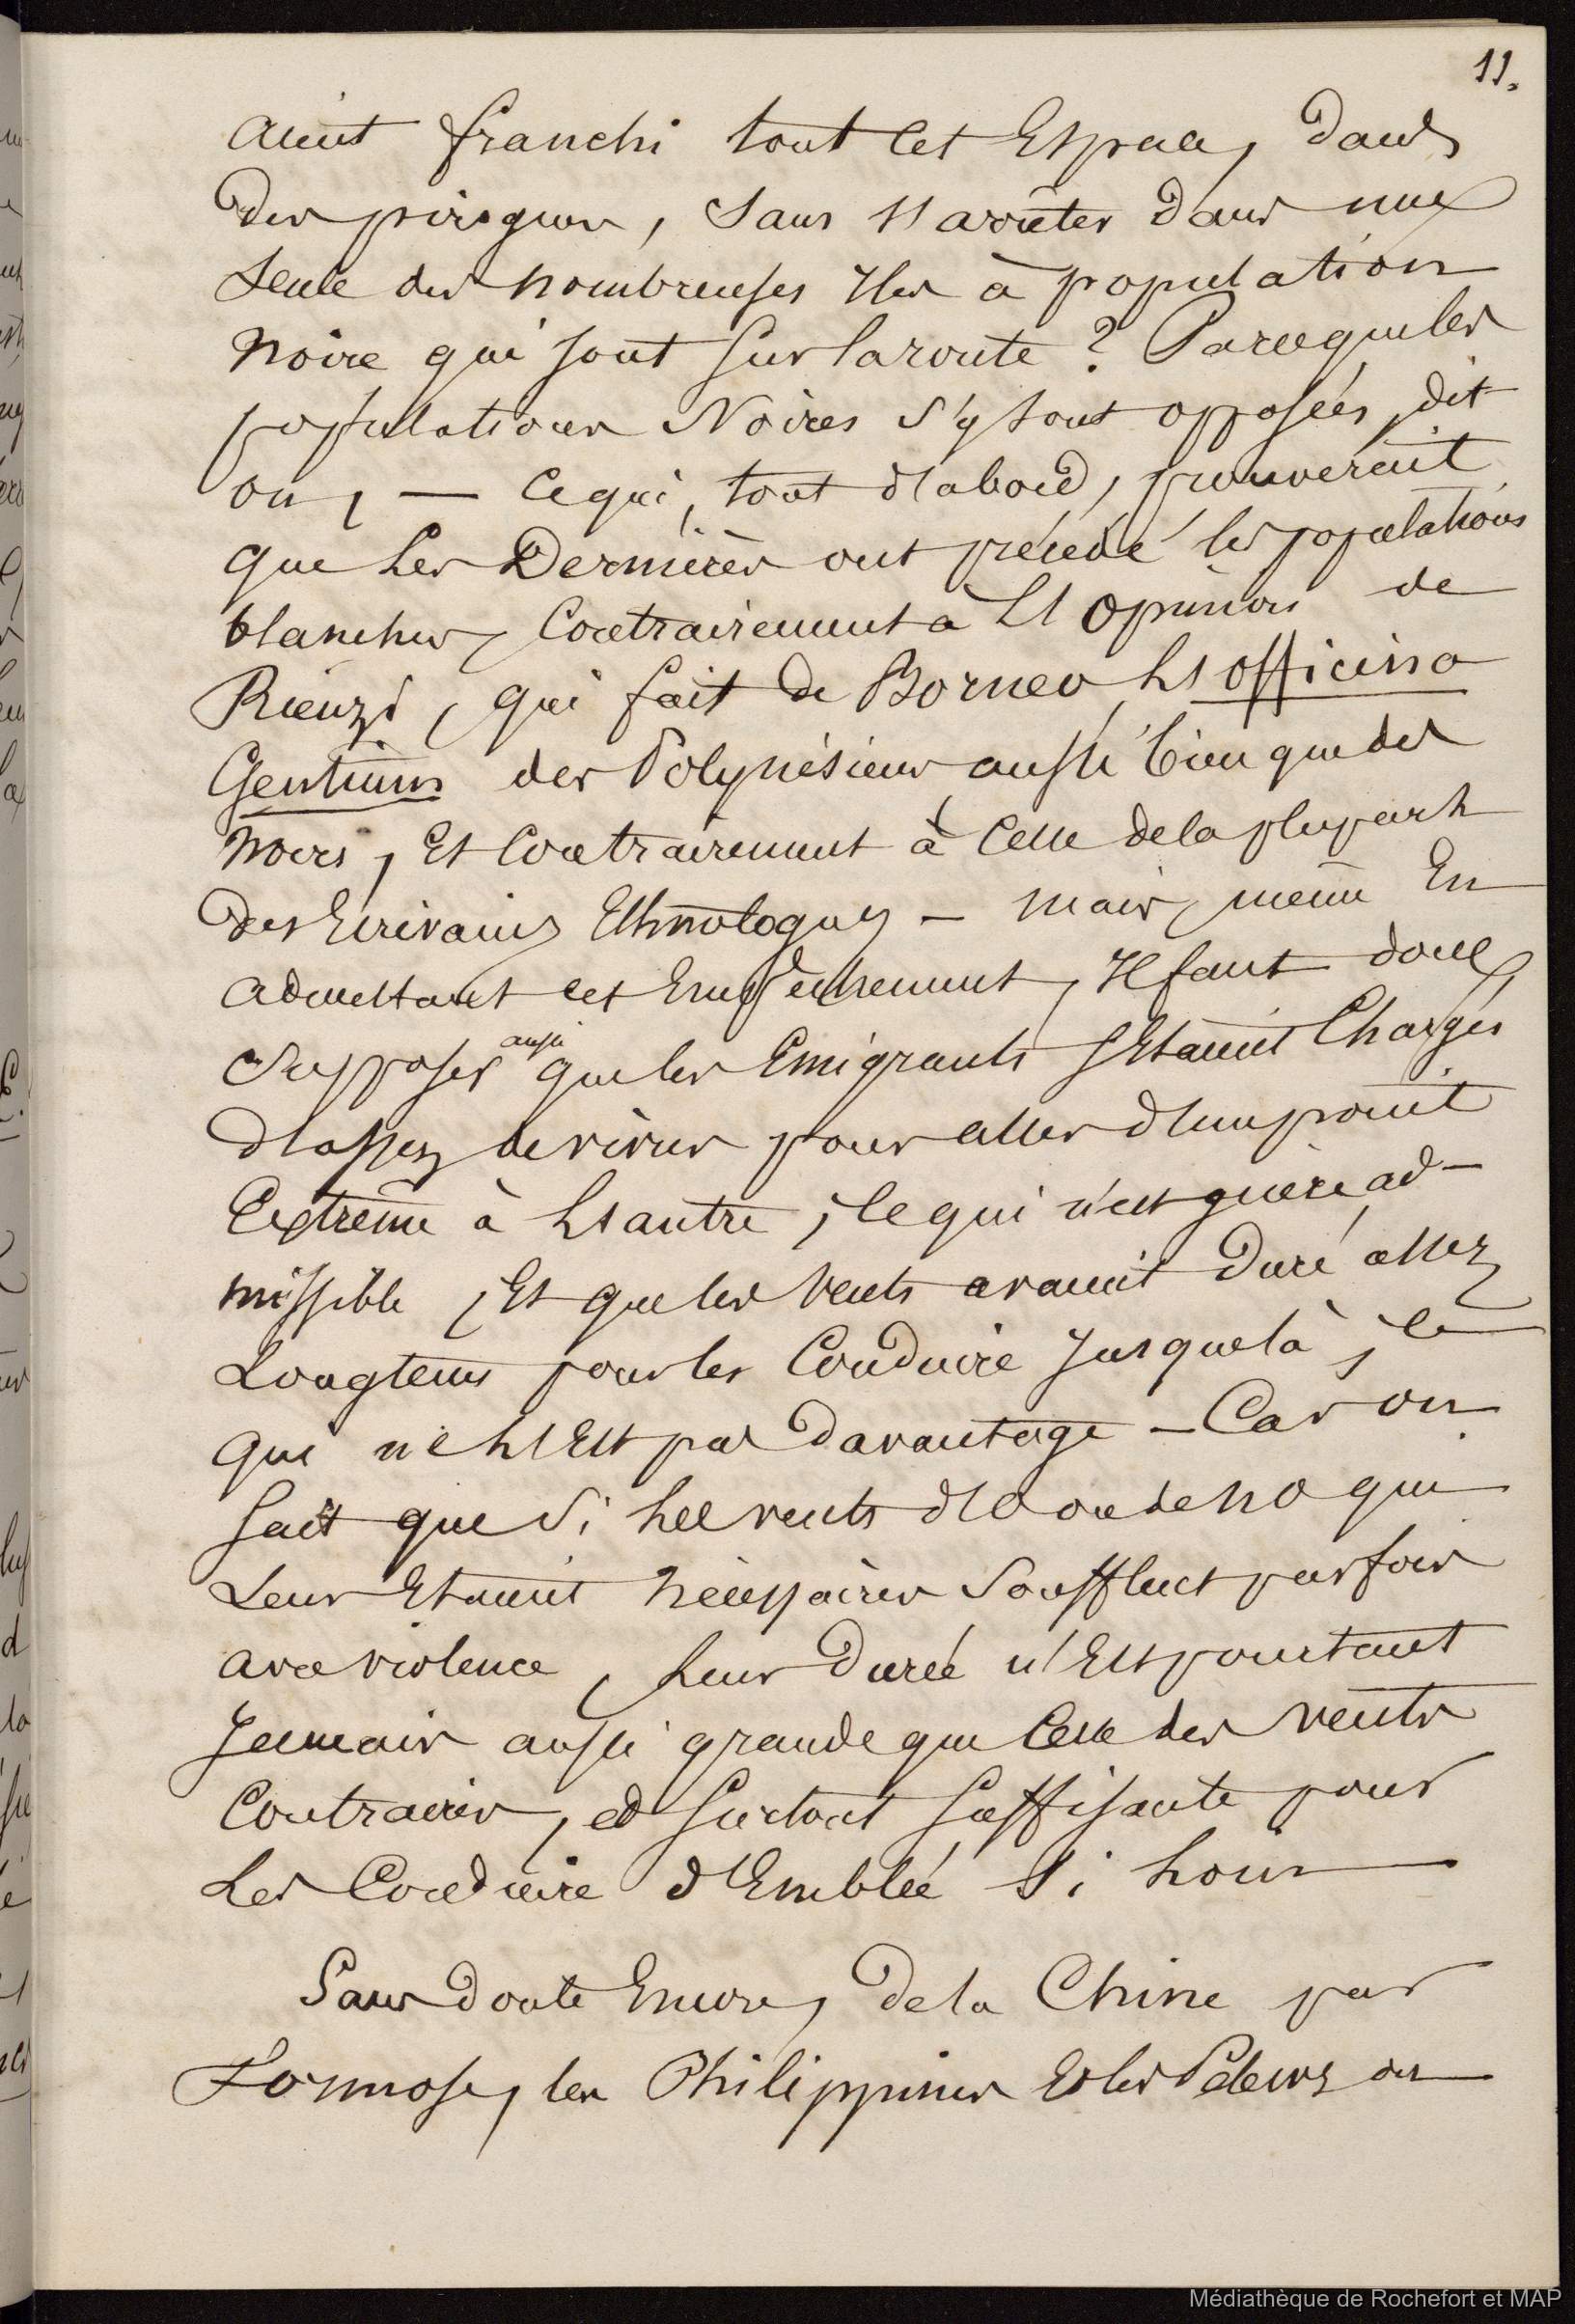 11.
aient franchi tout cet Espace, dans
des pirogues, Sans s'arrêter dans une
Seule des nombreuses Iles à population
noire qui sont sur la route ? Parceque les
populations Noires s'y sont opposées, dit
on, — ce qui, tout d'abord, prouverait
que les Dernières ont précédé les populations
blanches, Contrairement à l'opinion de
Rienzi, qui fait de Borneo l'officina
Gentium des Polynésiens aussi bien que des
noirs, Et Contrairement à Celle de la plupart
des Ecrivains Ethnologues — mais, même En
admettant cet Empêchement, Il faut donc
aussi
Supposer que les Emigrants s'Etaient Chargés
d'assez de vivres pour aller d'un point
Extrême à l'autre, ce qui n'est guère ad-
missible, Et que les vents avaient Duré assez
Longtems pour les Conduire Jusque là, ce
qui ne l'Est pas Davantage — Car on
Sait que si les vents d'O ou de NO qui
Leur Etaient Nécessaires Soufflent parfois
avec violence, leur Durée n'Est pourtant
Jamais aussi grande que Celle des vents
Contraires, et surtout suffisante pour
Les Conduire d'Emblée Si loin
Sans doute Encore, De la Chine par
Formose, les Philippines Et les Pelews on
Médiathèque de Rochefort et MAP